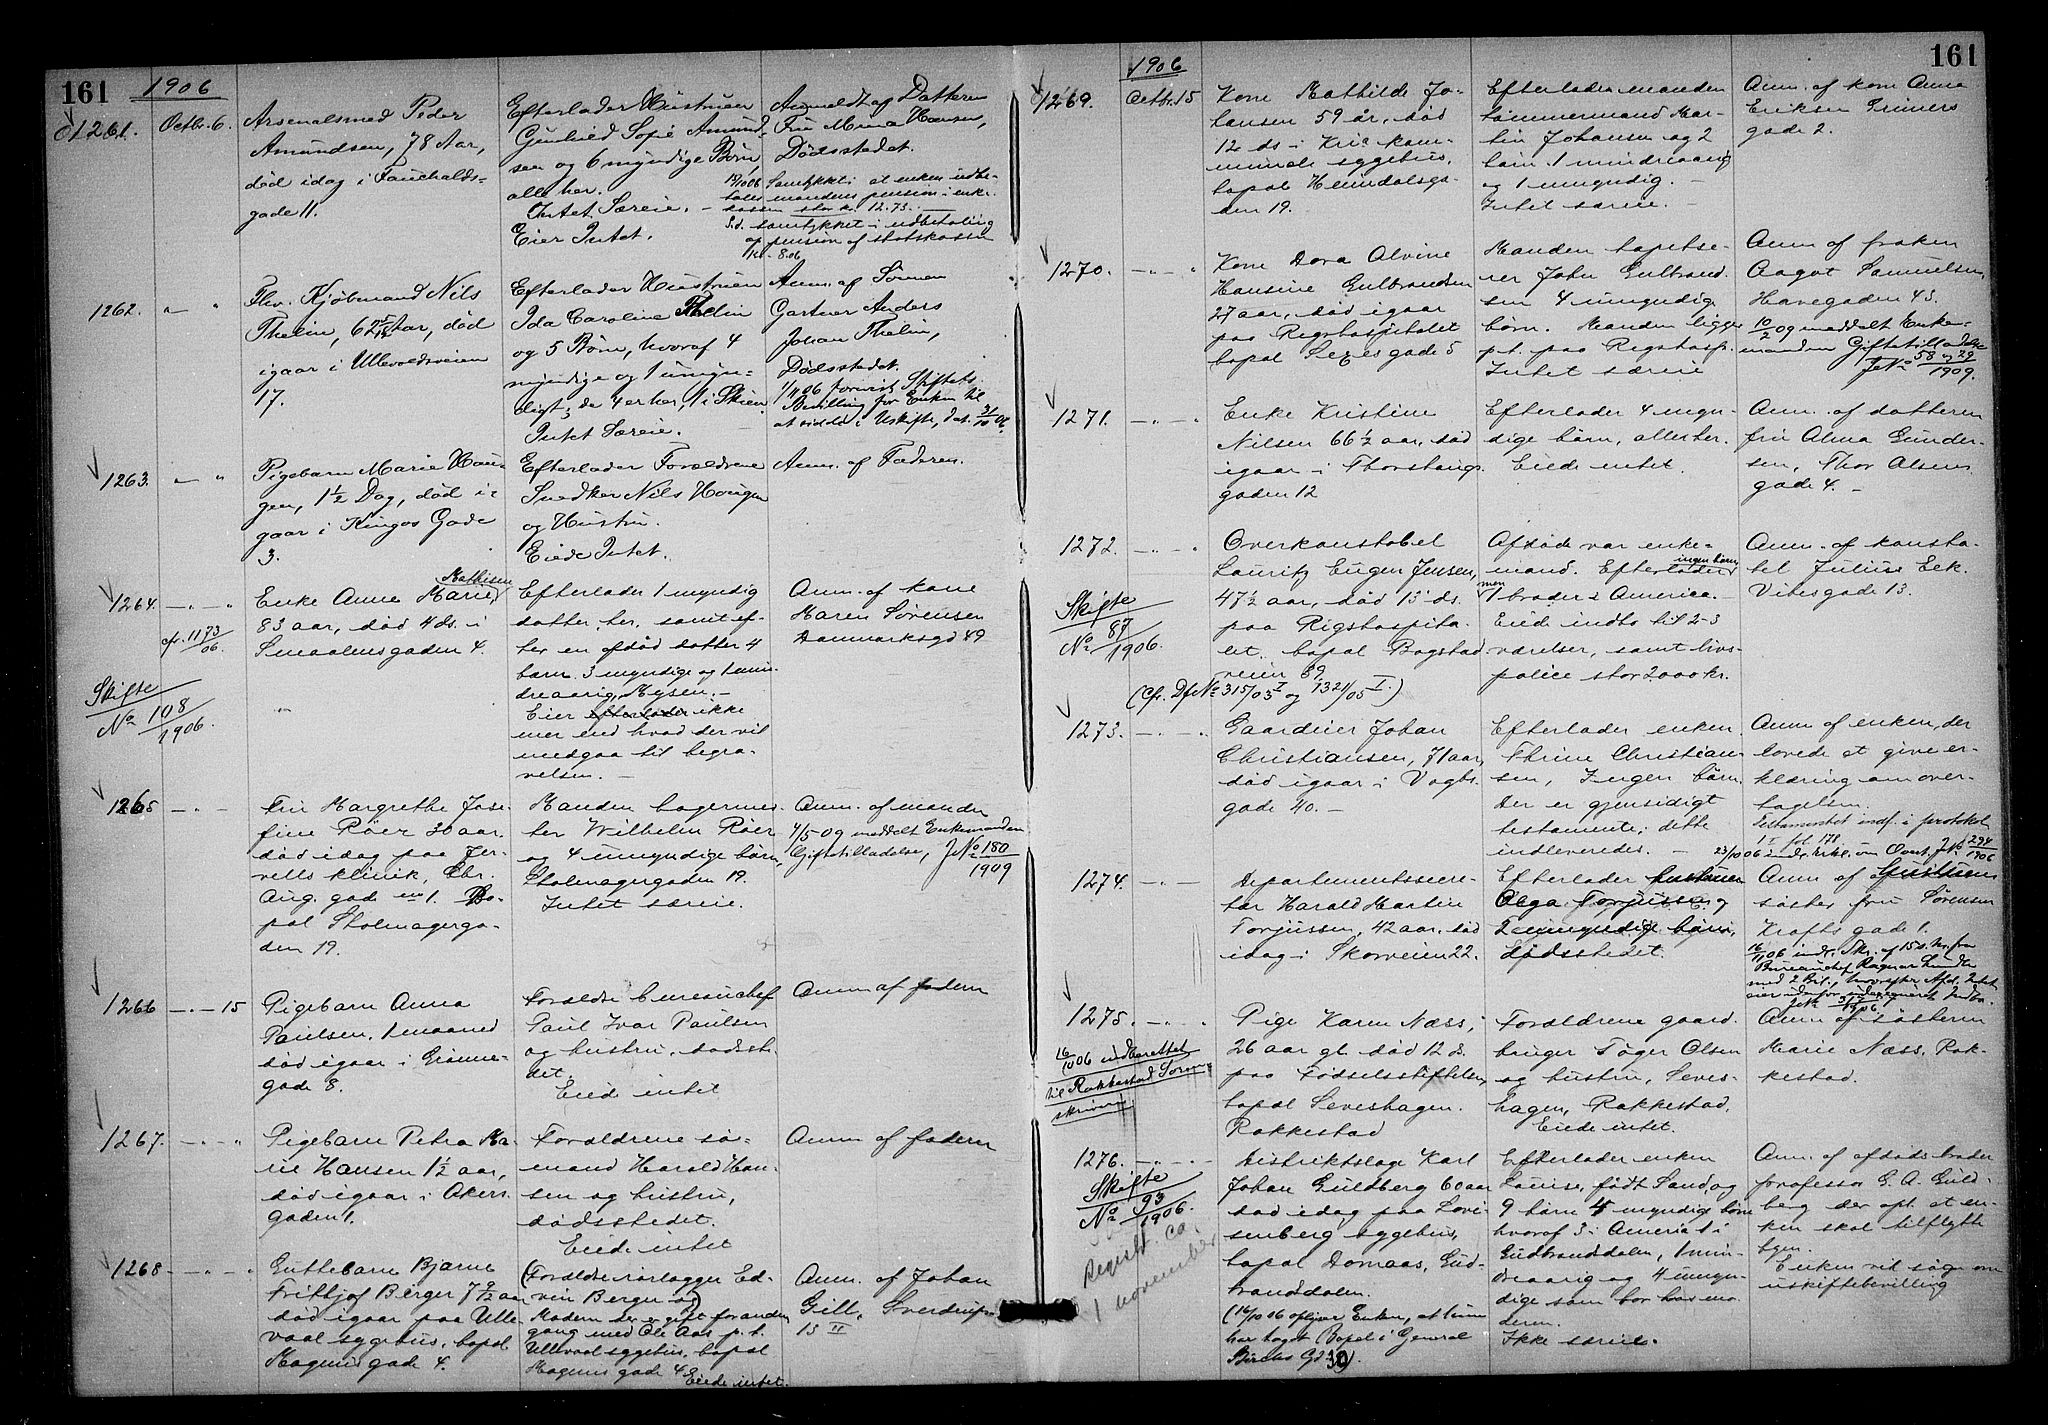 161
1906
01261.
Octbr. 6.
Arsenalsmed Peder
Amundsen, 78 Aar,
død idag i Fauchalds-
gade 11.
Efterlader Hustruen
Gunhild Sofie Amund-
sen og 6 myndige Børn,
alle her.
Intet Særeie. -
Eier Intet.
Anmeldt af Datteren
Fru Mina Hansen,
Dødsstedet.
Samtykket i at enken indbe-
taler mandens pension i enke-
kassen stor kr. 12.73.
S.d. samtykket i udbetaling
af pension af statskassen
kr. 8.06
1262.
Fhv. Kjøbmand Nils
Thelin, 62 Aar, død
igaar i Ullevoldsveien
17.
Efterlader Hustruen
Ida Caroline Thelin
og 5 Børn, hvoraf 4
myndige og 1 umyn-
digt; de 4 er her, 1 i Skien
Intet Særeie.
Anm. af Sønnen
Gartner Anders
Johan Thelin,
Dødsstedet.
1/11 06 forevist Skiftets
Bevilling for Enken til
at sidde i Uskifte, dat. 31/10 06.
1263.
Pigebarn Marie Hau-
gen, 1 1/2 Dag, død i-
gaar i Kingos Gade
3.
Efterlader Forældrene
Snedker Nils Hougen
og Hustru.
Eiede Intet.
Anm. af Faderen.
1264.
cfr. 1173/06
Skifte
No 108/1906.
Enke Anne Marie Mathisen
83 aar, død 4 ds. i
Smaalensgaden 4.
Efterlader 1 myndig
datter, her, samt ef-
ter en afdød datter 4
børn 3 myndige og 1 min-
dreaarig, Mysen. -
Eier efterlader ikke
mer end hvad der vil
medgaa til begra-
velsen. -
Anm. af kone
Maren Sørensen
Danmarksgd 49
1265
Fru Margrethe Jose-
fine Røer 30 aar.
død idag paa Jer-
vells klinik, Chr.
Aug. gade No 1. Bo-
pal Stolmagerga-
den 19.
Manden bagermes-
ter Wilhelm Røer
og 4 umyndige børn,
Stolmagergaden 19.
Intet særeie.
Anm. af manden
4/5 09 meddelt Enkemanden
Giftetilladelse, J.No 180/1909
1266
15
Pigebarn Anna
Paulsen, 1 maaned
død igaar i Grønne-
gade 8.
Forældre bureauchef
Paul Ivar Paulsen
og hustru, dødsste-
det.
Eiede intet
Anm af faderen
1267.
Pigebarn Petra Ma-
rie Hansen 1 1/2 aar,
død igaar i Akers-
gaden 1.
Forældrene sø-
mand Harald Han-
sen og hustru,
dødsstedet.
Eiede intet
Anm af faderen
1268
Guttebarn Bjarne
Fritjof Berger 7 1/2 aar
død igaar paa Ulle-
vaal sygehus, bopal
Magnus gade 4.
(Forældre rørlægger Ed-
vin Berger og)
Modern der er gift foranden
gang med Ole Aas p.t.
Ullevaal sygehus, bopal
Magnus gade 4 Eiede intet.
Anm. af Johan
Gill, Sverdrups
15 II
161
1906
01269.
Octbr. 15
Kone Mathilde Jo-
hansen 59 år, død
12 ds i Kria kom-
munale sygehus,
bopal Heimdalsga-
den 19.
Efterlader manden
tømmermand Mar-
tin Johansen og 2
børn 1 mindreaarig
og 1 umyndig. -
Intet særeie. -
Anm. af kone Anna
Eriksen Grüners
gade 2.
1270.
Kone Dora Alvine
Hansine Gulbrandsen
27 aar, død igaar
paa Rigshospitalet
bopal Seges gade 5
Manden tapetse-
rer John Gulbrand-
sen 4 umyndige
børn. Manden ligger
p.t. paa Rigshosp.
Intet særeie
Anm af frøken
Aagot Samuelsen,
Havegaden 43.
10/2 09 meddelt Enke-
manden Giftetilladelse
J.No 58 og 29/1909.
1271.
Enke Kristine
Nilsen 66 1/2 aar, død
igaar i Thorshaugs
gaden 12
Efterlader 4 myn-
dige børn, alle her.
Eiede intet.
Anm. af datteren
fru Alma Gunder-
sen, Thor Olsens
gade 4. -
1272.
Skifte
No 87/1906.
Overkonstabel
Lauritz Eugen Jensen,
47 1/2 aar, død 13 ds.
paa Rigshospita-
let. bopal Bogstad-
veien 89.
(Cfr. Df No 315/03 I og 1321/05 I.)
Afdøde var enke-
mand. Efterlader ingen børn
men 1 broder i America. -
Eiede indbo til 2-3
værelser, samt livs-
police stor 2000 kr.
Anm. af konsta-
bel Julius Eek.
Vibes gade 13.
1273.
Gaardeier Johan
Christiansen, 71 aar,
død igaar i Vogts-
gade 40. -
Efterlader enken
Thrine Christian-
sen, Ingen børn.
Der er gjensidigt
testamente; dette
indleveredes. -
Anm af enken, der
lovede at give er-
klæring om over-
tagelsen.
Testamentet indf. i protokol
I fol 178
23/10 06 indk. Erkl. om Overt. J.No 294/1906
1274.
Departementssecre-
tær Harald Martin
Torjussen, 42 aar, død
idag i Skovveien 22.
Efterlader hustruen
Olga Torjussen og
2 umyndige børn,
dødsstedet.
Anm af
søster fru Sørensen
Krafts gade 1.
16/11 06 indk. Skr. af 15 ds. hr. fra
Bureauchef Ragnar
med 2 Bil., hvorefter Afd. Intet
eier udenfor Indbo.
1275.
16/10 06 indberettet
til Rakkestad Soren-
skriveri
Pige Karen Næss,
26 aar gl. død 12 ds.
paa Fødselsstiftelsen,
bopal Seveshagen.
Rakkestad
Forældrene gaard-
bruger Tøger Olsen
og hustru, Seves-
hagen, Rakkestad,
Eiede intet.
Anm af søsteren
Marie Næss, Rak-
kestad.
1276.
Skifte
No 93/1906.
Registr. ca.
1 november
Distriktslæge Karl
Johan Guldberg 60 aar
død idag paa Lovi-
senberg sygehus,
bopal Domaas, Gud-
bransdalen.
(16/10 06 opliser Enken, at hun
har taget Bopel i General
Birchs Gd 30).
Efterlader enken
Louise, født Sand, og
9 børn 4 myndige børn
hvoraf 3 i America 1 i
Gudbrandsdalen, 1 min-
dreaarig og 4 umyn-
dige som bor hos mo-
deren.
Ikke særeie.
Anm. af afdødes broder
professor G. A. Guld-
berg der opl. at en-
ken skal tilflytte
byen.
Enken vil søge om
uskiftebevilling